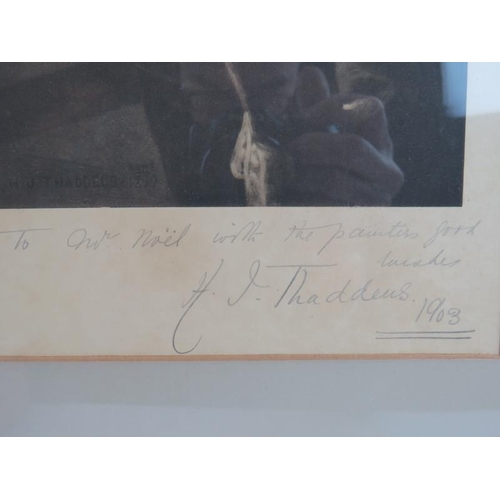 H J THADDEUS
To Mr Noël with the painters good
wishes
H. J. Thaddeus.
1903